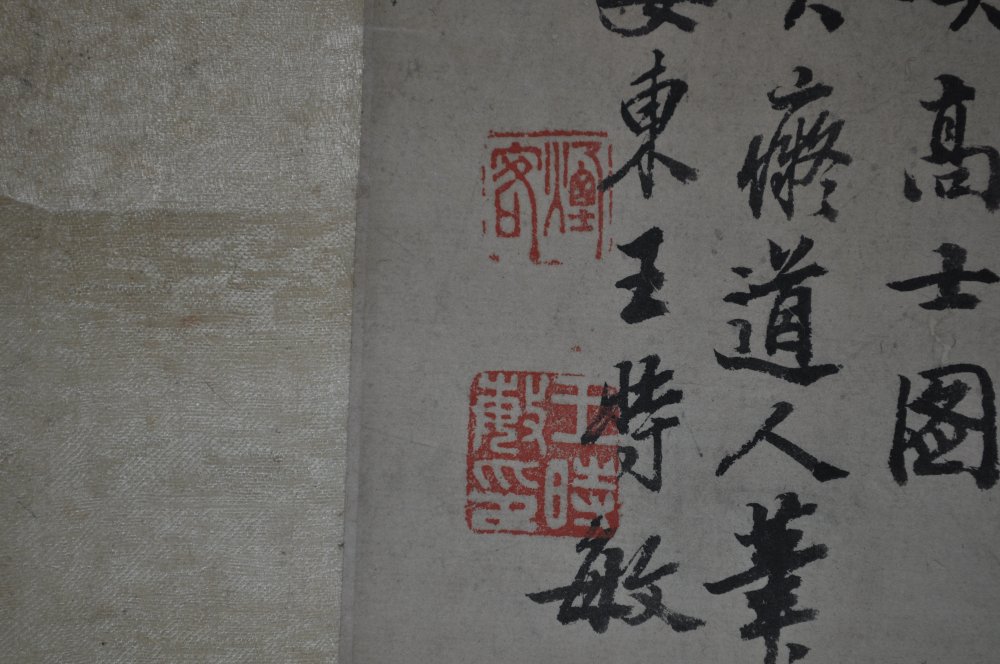 高士圖
癡道人筆
婁東王時敏
煙客
王時敏印